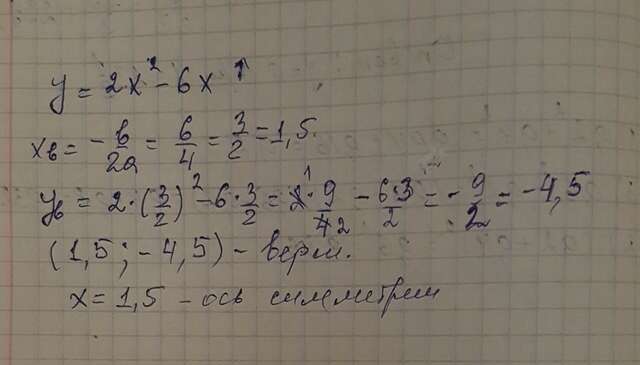 y = 2x² - 6x ↑
xв = -b/2a = 6/4 = 3/2 = 1,5.
yв = 2·(3/2)² - 6·3/2 = 2¹·9/4₂ - 6·3/2 = -9/2 = -4,5
(1,5; -4,5) - верш.
x = 1,5 - ось симметрии